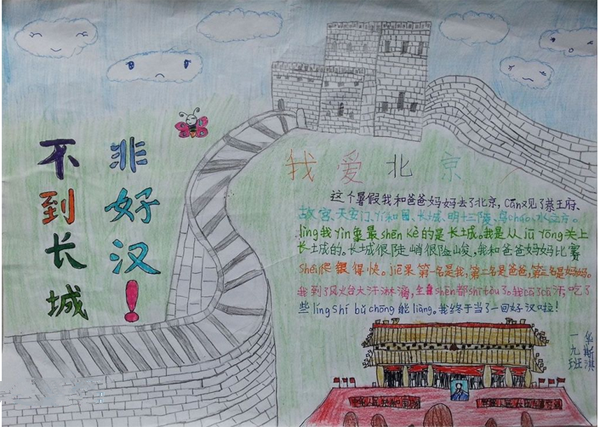 不到长城
非好汉！
我爱北京
这个暑假我和爸爸妈妈去了北京，cān观了恭王府、
故宫、天安门、yí和园、长城、明十三陵、鸟cháo、水立方。
lìng我yìn象最shēn kè的是长城。我是从jū yōng关上
长土成的。长城很陡峭很险峻，我和爸爸妈妈比赛
shéi爬得快。jié果第一名是我，第二名是爸爸，第三名是妈妈。
我到了风火台大汗淋漓，全shēn都shī tòu了。我cā了cā汗，吃了
些líng shí bǔ chōng néng liàng。我终于当了一回好汉啦！
一九班